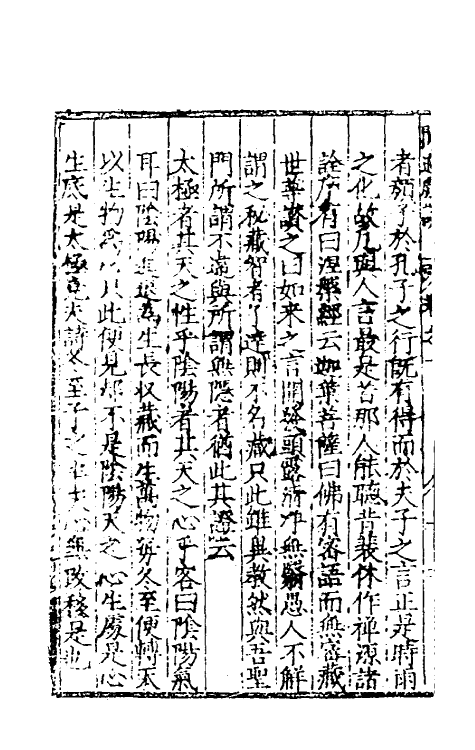 者顏子於孔子之行既有得而於夫子之言正是時雨
之化故凡與人言最是苦那人能聽昔裴休作禅源諸
詮序有曰涅槃經云迦葉菩薩曰佛有密語而無密藏
世尊讃之曰如來之言開發顯露清淨無翳愚人不解
謂之秘藏智者了達則不名藏只此雖異教然與吾聖
門所謂不遠與所謂無隱者猶此其證云
太極者其天之性乎陰陽者其天之心乎客曰陰陽氣
耳曰陰陽進退為生長収藏而生萬物每冬至便轉本
以生物為 只此便見却不是陰陽天之心生處是心
生底是太極 天詩冬至子之 天心無改移是也